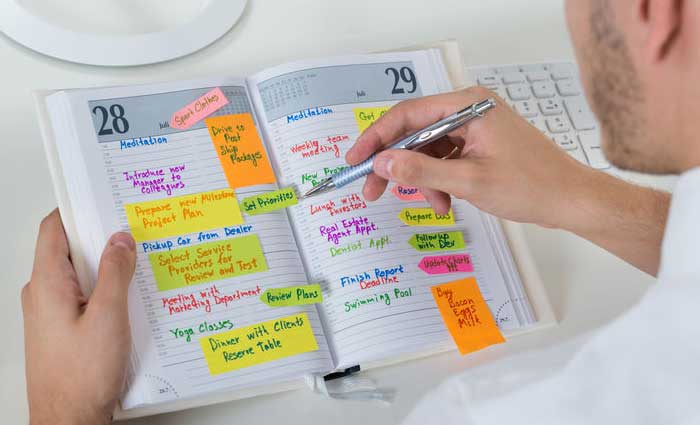 28
Juli
Sport Clothes
Meditation
Drive to
Post
Ship
Packages
Introduce new
Manager to colleagues
Prepare new Milestone
Project Plan
Set Priorities
Pickup Car from Dealer
Select Service
Providers for
Review and Test
Meeting with
Marketing Department
Review Plans
Yoga Classes
Dinner with Clients
Reserve Table
Juli
29
Meditation
Weekly team
meeting
New
Lunch with
investors
Prepare
Real Estate
Agent Appt.
Dentist Appt.
Followup
with Dev
Update Charts
Finish Report
Deadline
Swimming Pool
Buy
Bacon
Eggs
Milk